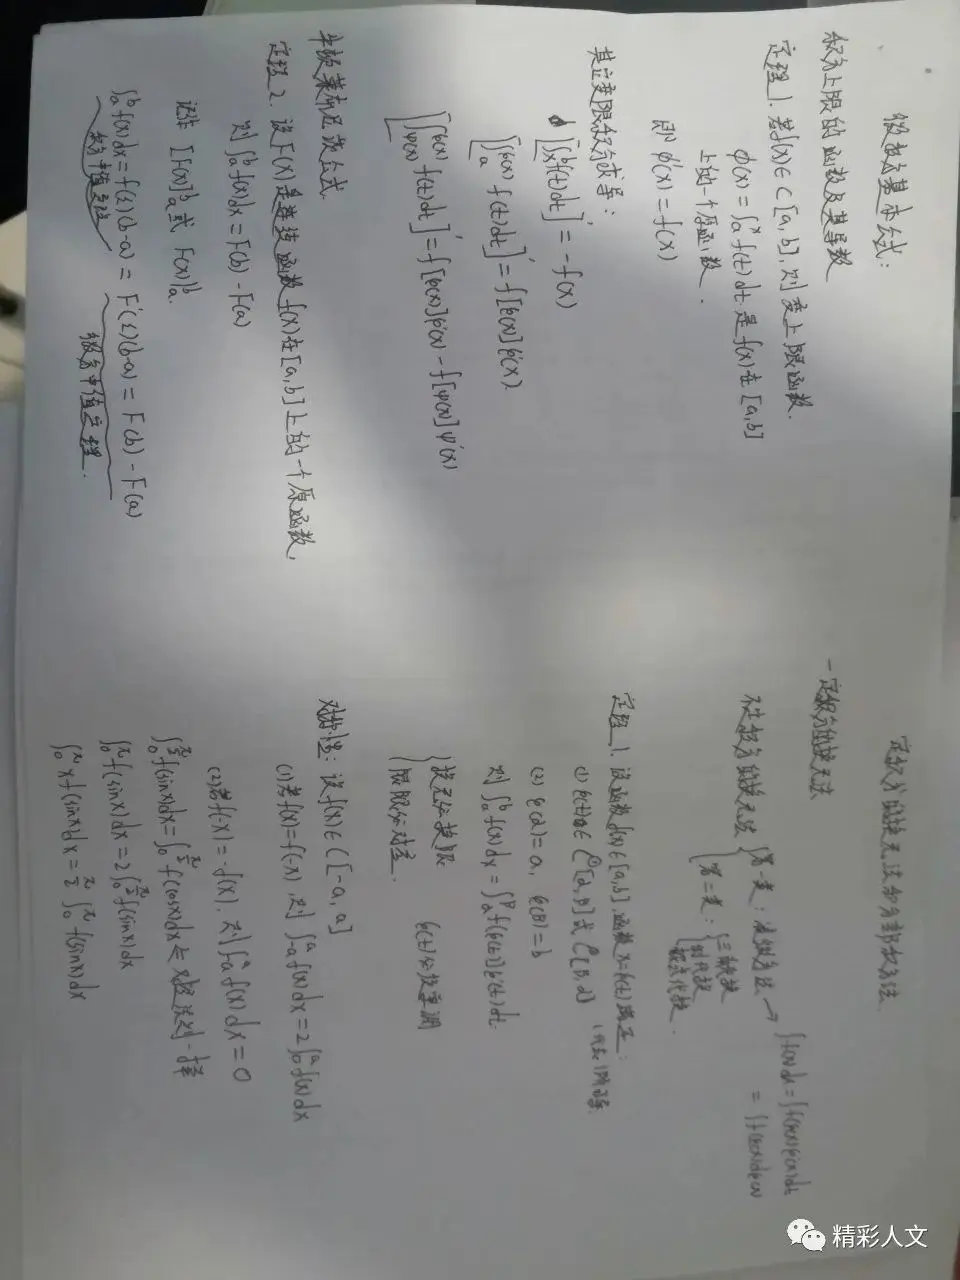 微积分基本公式:
积分上限的函数及其导数
定理1. 若f(x)∈C[a,b],则变上限函数.
φ(x)=∫ₐˣ f(t)dt 是f(x)在[a,b]
上的一个原函数.
即 φ'(x)=f(x)
其它变限积分求导:
[∫ₓᵇ f(t)dt]'=-f(x)
[∫ₐ^φ(x) f(t)dt]'=f[φ(x)]φ'(x).
[∫_ψ(x)^φ(x) f(t)dt]'=f[φ(x)]φ'(x)-f[ψ(x)]ψ'(x)
牛顿莱布尼茨公式.
定理2. 设F(x)是连续函数f(x)在[a,b]上的一个原函数,
则∫ₐᵇ f(x)dx=F(b)-F(a)
记作 [F(x)]ₐᵇ 或 F(x)|ₐᵇ.
∫ₐᵇ f(x)dx=f(ξ)(b-a)=F'(ξ)(b-a)=F(b)-F(a)
积分中值定理
微分中值定理.
定积分的换元法和分部积分法.
一 定积分的换元法
不定积分的换元法
第一类:凑微分法→
第二类:
三角代换
根式代换.
定理1. 设函数f(x)∈[a,b],函数x=φ(t)满足:
(1) φ(t)∈C'[α,β]或C'[β,α]
(2) φ(α)=a, φ(β)=b
则∫ₐᵇ f(x)dx=∫_α^β f[φ(t)]φ'(t)dt.
换元必换限 φ(t)必须单调
限限必对应.
对称性:设f(x)∈C[-a,a]
(1)若f(x)=f(-x),则∫₋ₐᵃ f(x)dx=2∫₀ᵃ f(x)dx
(2)若f(-x)=-f(x),则∫₋ₐᵃ f(x)dx=0
∫₀^(π/2) f(sinx)dx=∫₀^(π/2) f(cosx)dx
∫₀^π f(sinx)dx=2∫₀^(π/2) f(sinx)dx
∫₀^π xf(sinx)dx=π/2∫₀^π f(sinx)dx
精彩人文